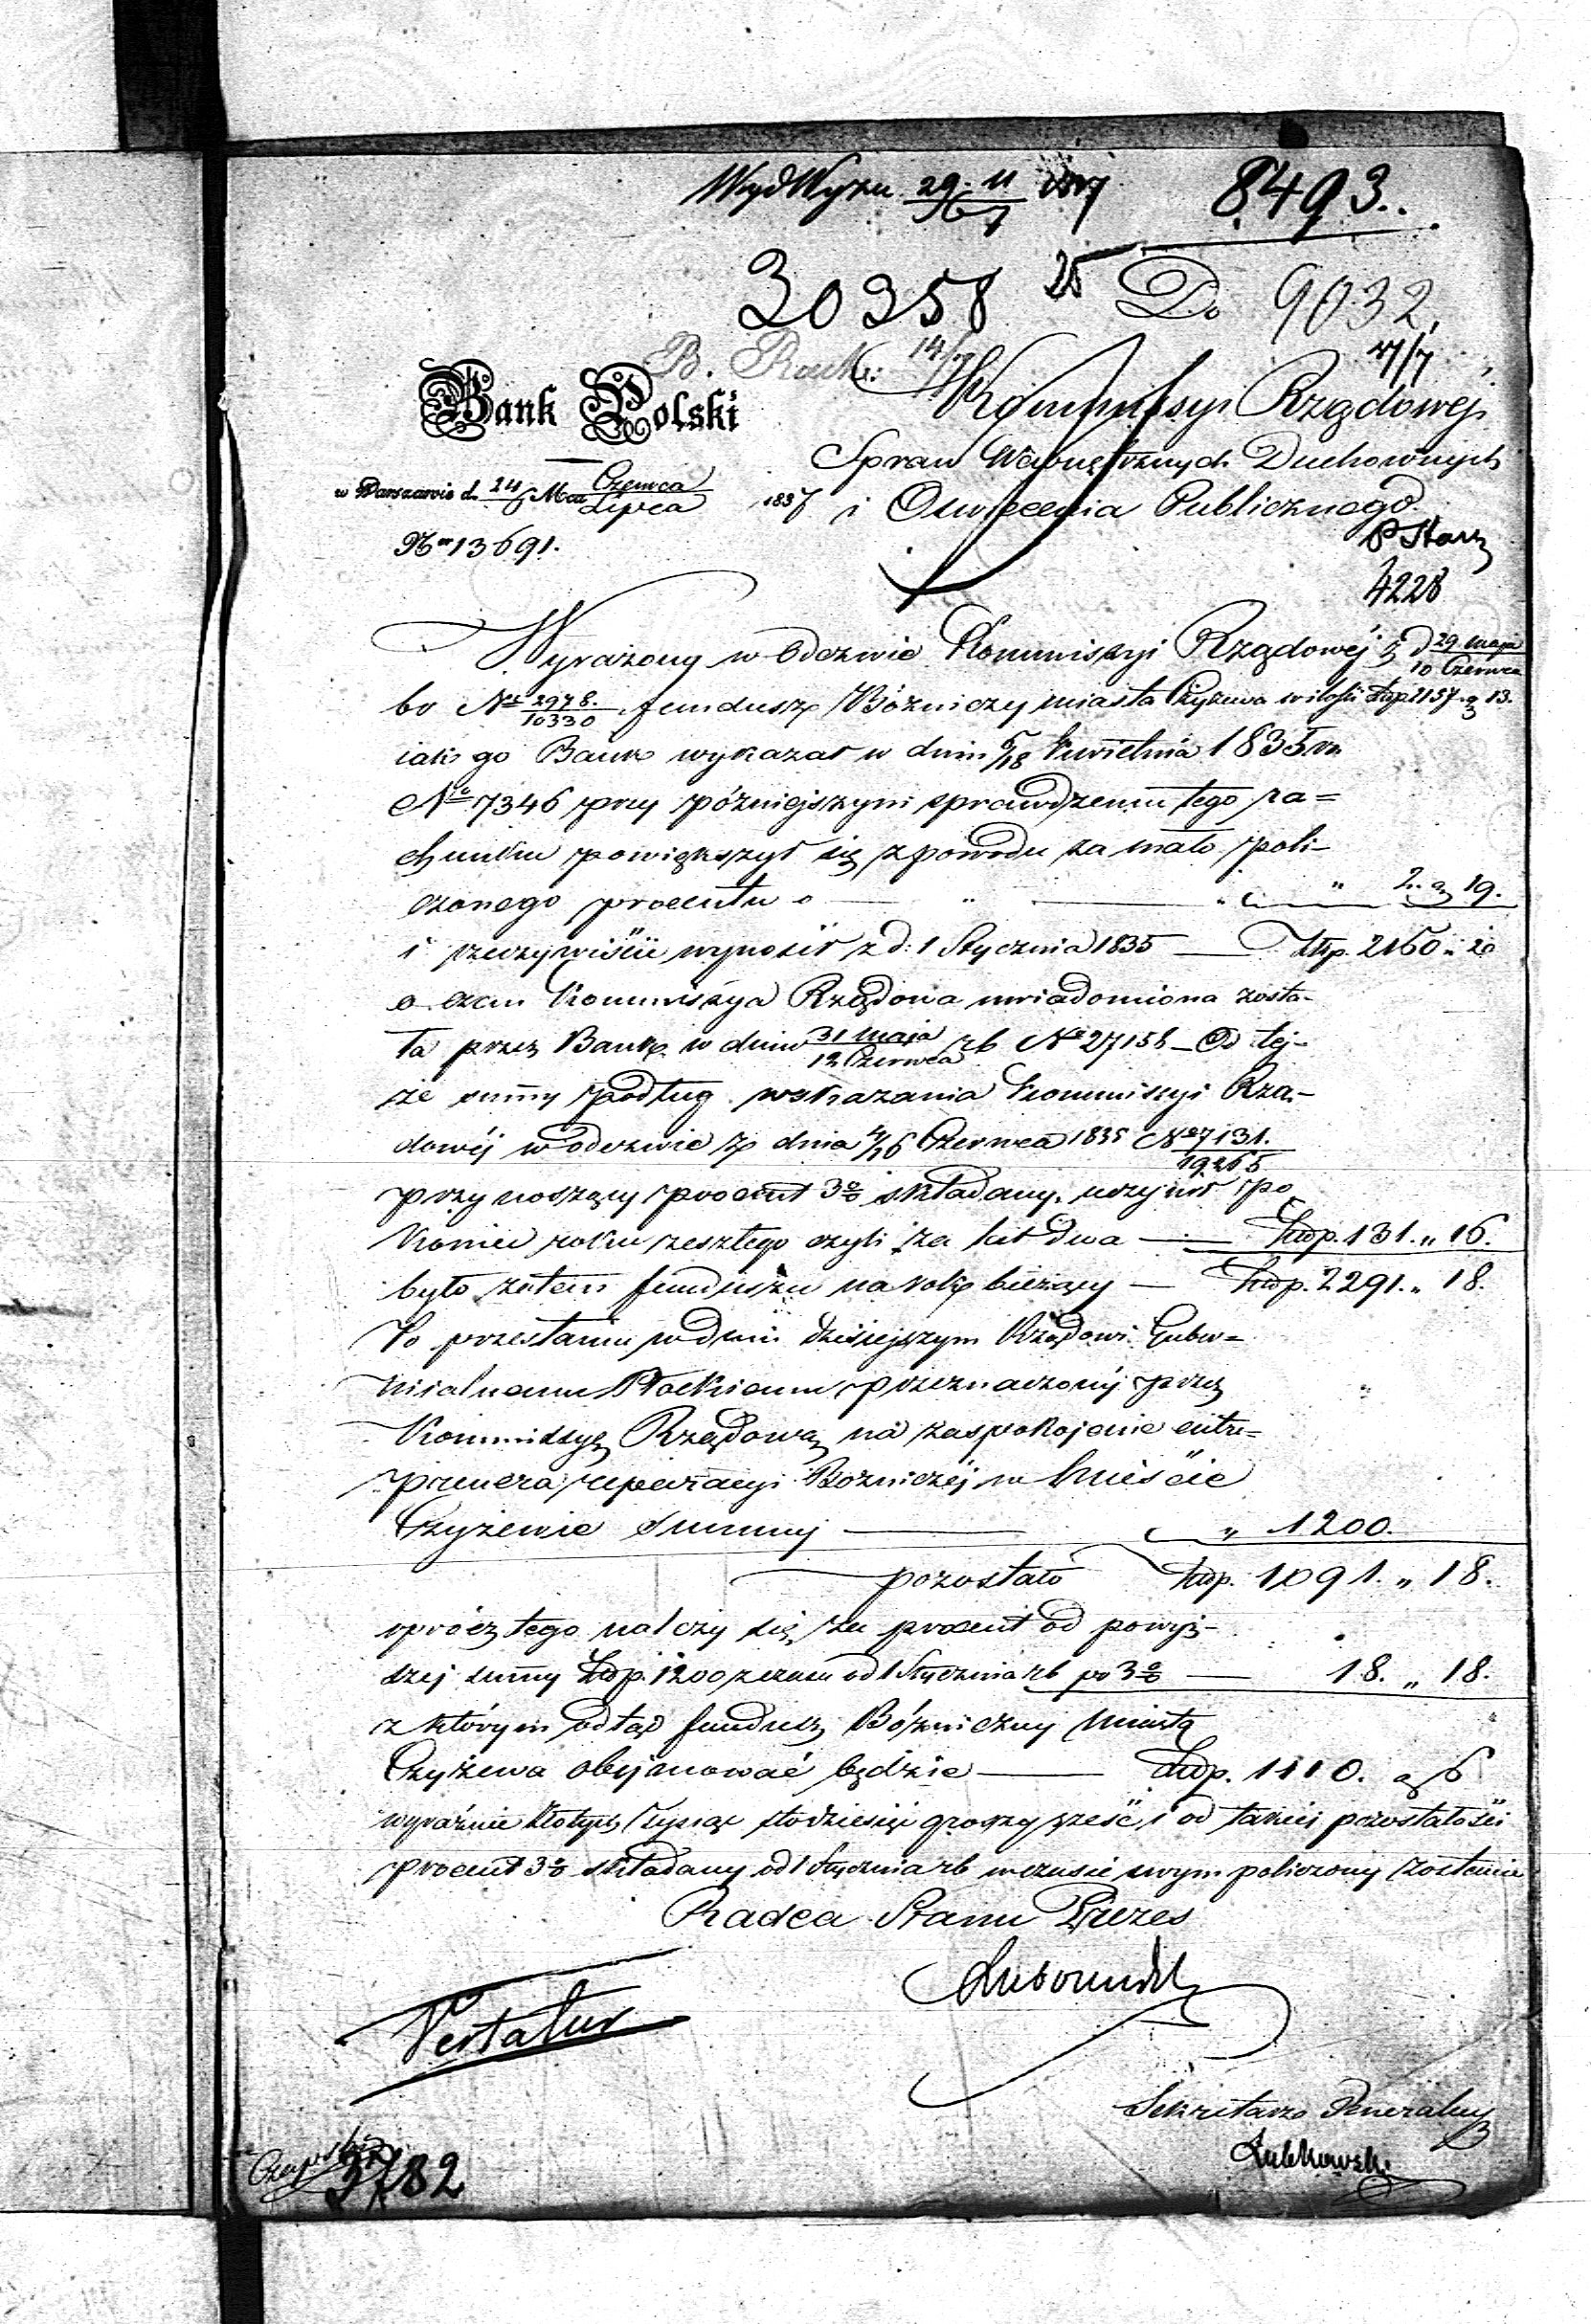 Wyd Wyzn 29. 11 1837
8493.
30358 25 Do 9032
B. Rach: 14/7 17/7
Bank Polski
Kommissyi Rządowej
Spraw Wewnętrznych Duchownych
w Warszawie d. 24/6 Mca Czerwca/Lipca 1837
i Oświecenia Publicznego.
Nr 13691.
4228
Wyrażony w Odezwie Kommissyi Rządowéj z d 29 Maja/10 Czerwca
br No 2978./10330 fundusz Bóżniczy miasta Czyżewa w ilości Złp 2157 g 13.
iak go Bank wykazał w dniu 6/18 Kwietnia 1835 za
No 7346 przy późniejszym sprawdzeniu tego ra=
chunku powiększył się z powodu za mało poli-
czonego procentu o — " — " 2. g 19.
i rzeczywiście wynosił z d: 1 Stycznia 1835 — Złp. 2160 " 2
o czem Kommissya Rządowa uwiadomiona zosta-
ła przez Bank w dniu 31 Maja/12 Czerwca rb No 27158 — Od tej-
że summy podług wskazania Kommissyi Rzą-
dowéj w odezwie z dnia 4/16 Czerwca 1835 No 7131./19265
przynoszący procent 3% składany, uczynił po
koniec roku zeszłego czyli za lat dwa — Złp. 131. " 16.
było zatem funduszu na rok bieżący — Złp. 2291. " 18.
Po przesłaniu w dniu dzisiejszym Rządowi Guber=
nialnemu Płockiemu przeznaczonéj przez
Kommissyę Rządową na zaspokojenie entre=
prenera reperacyi Bożniczéj w Mieście
Czyżewie Summy — " 1200.
pozostało Złp. 1091. " 18.
oprócz tego należy się za procent od powyż-
szej summy Złp. 1200 z czasu od 1 Stycznia rb po 3% — 18. " 18.
z którym odtąd fundusz Bóżniczny Miasta
Czyżewa obejmować będzie — Złp. 1110. g 6
wyraźnie Złotych Tysiąc stodziesięć groszy sześć, i od takiéj pozostałości
procent 3% składany od 1 Stycznia rb w czasie swym policzony zostanie
Radca Stanu Prezes
Lubowidzki
Vertatur
Sekretarz Generalny
Lubkowski
3782